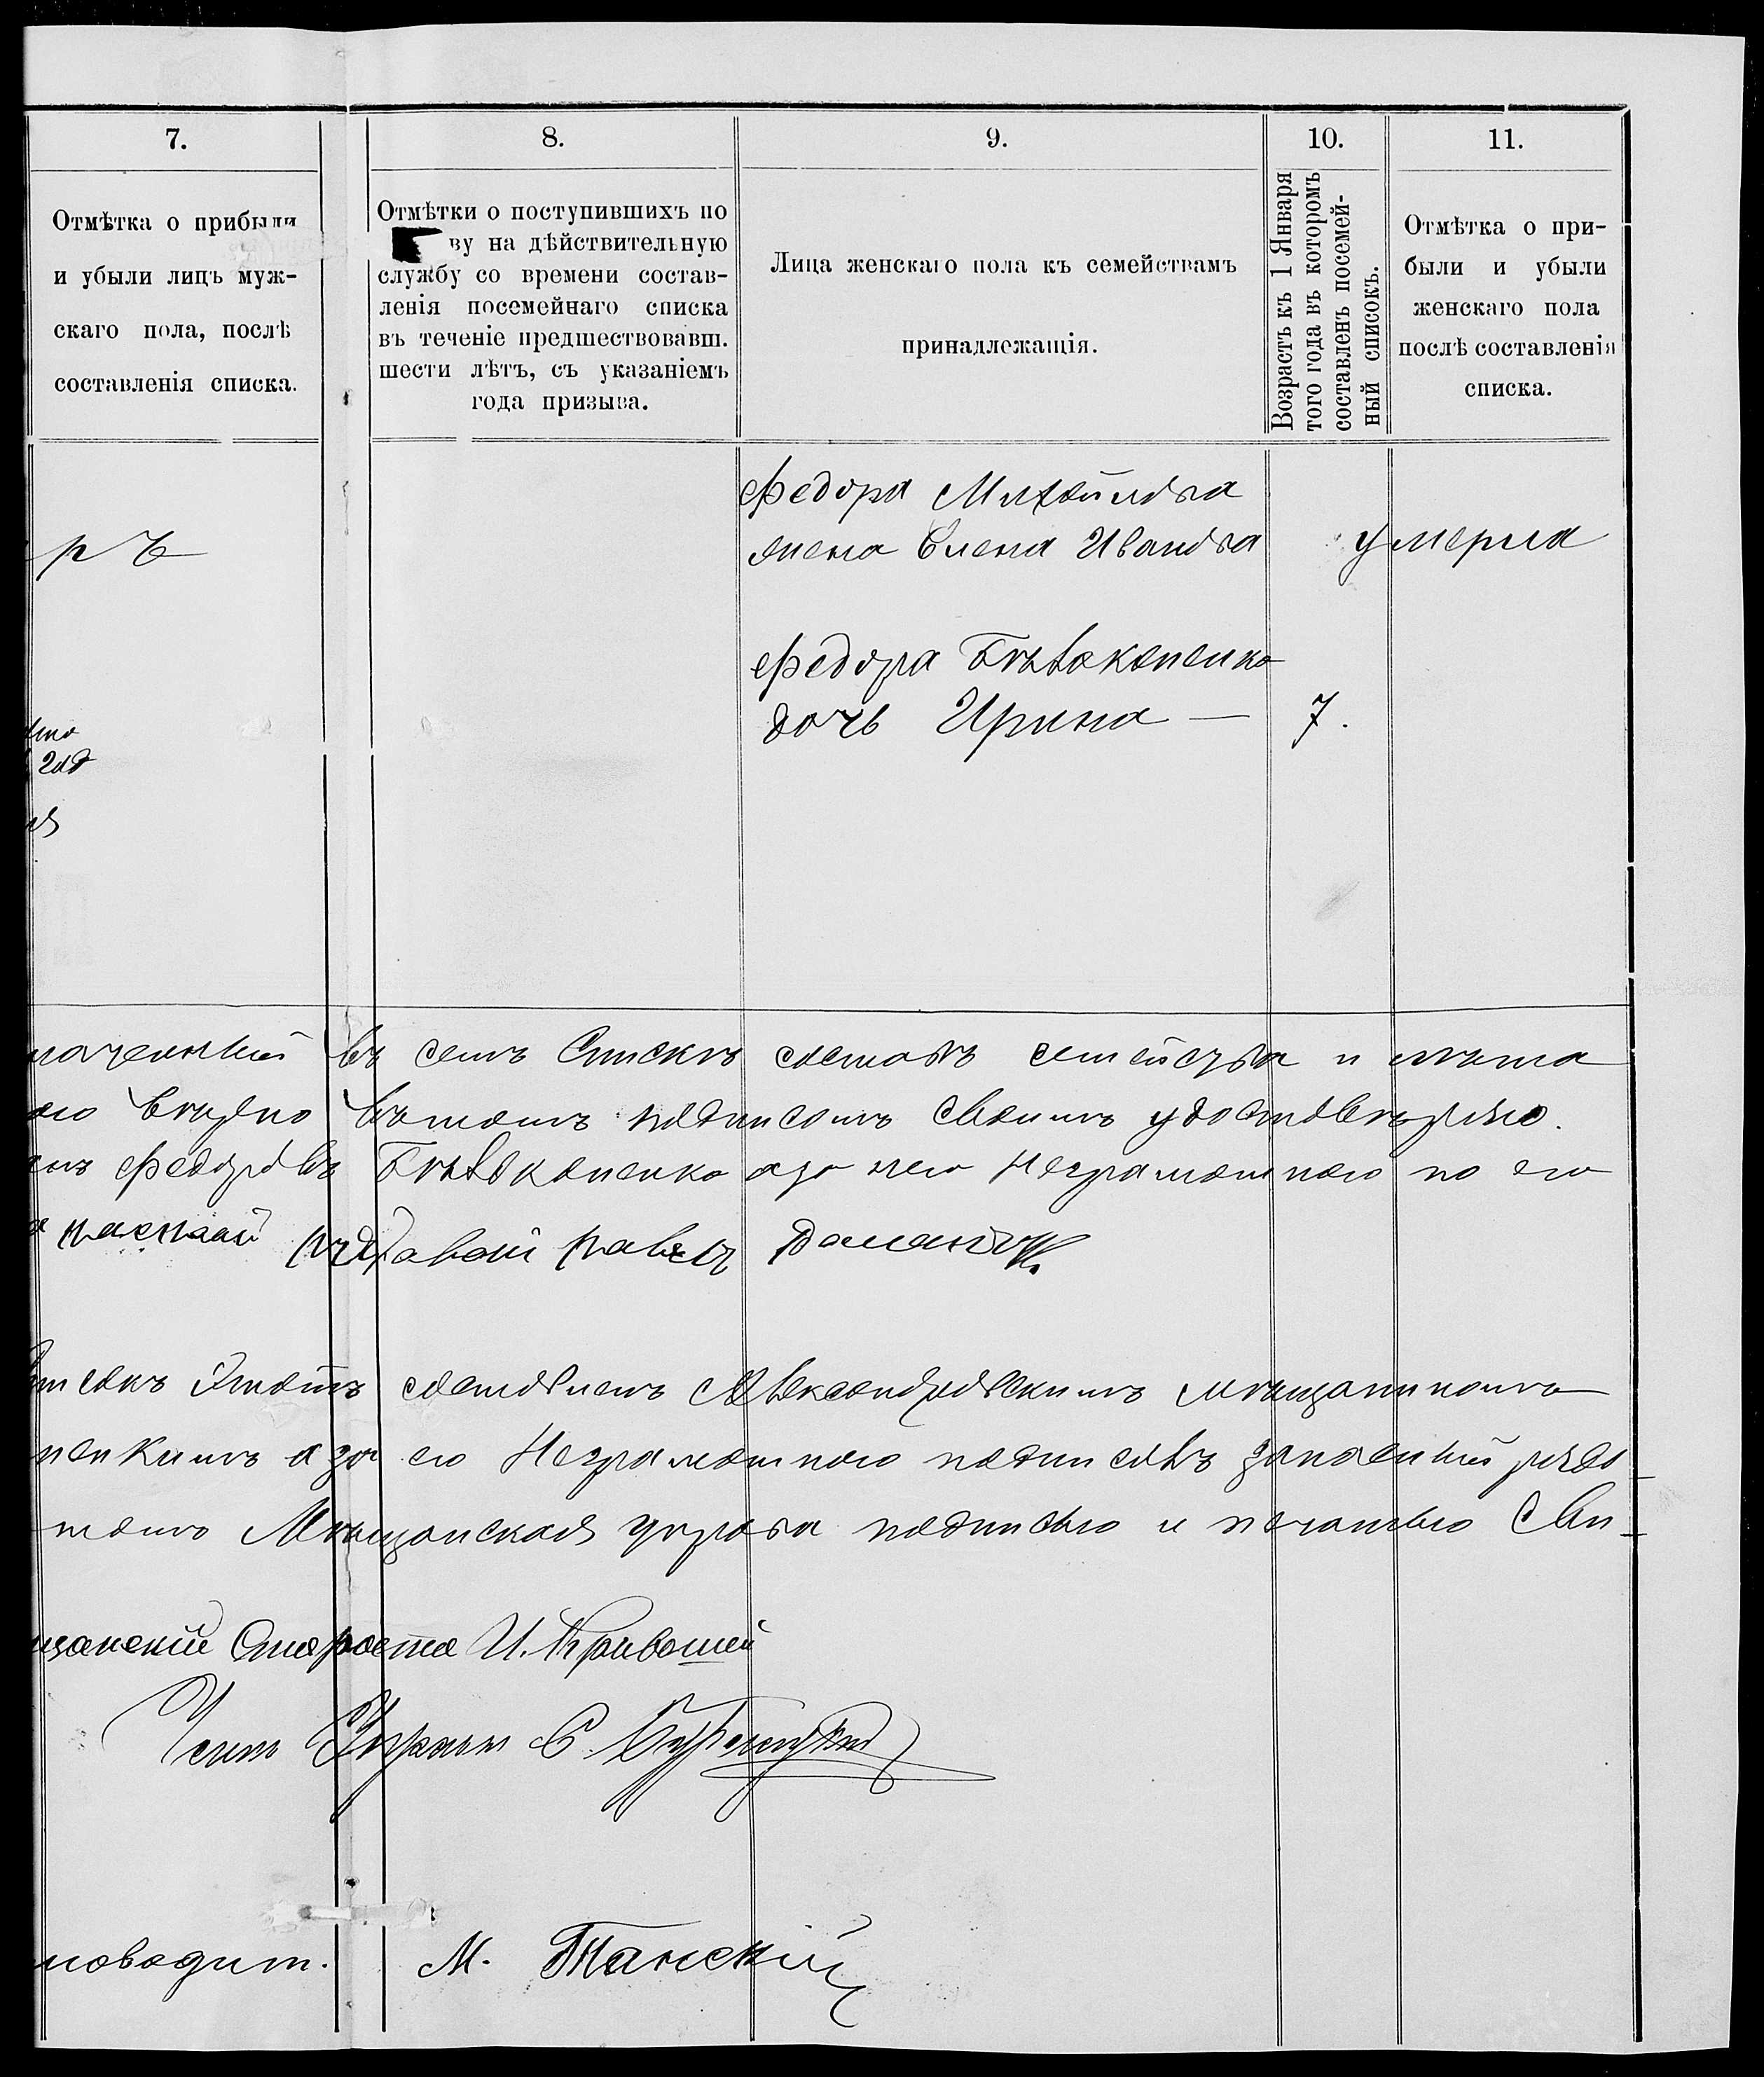 7.
8.
9.
10.
11.
Отмѣтка о прибыли
и убыли лицъ муж-
скаго пола, послѣ
составленія списка.
Отмѣтки о поступившихъ по
ву на дѣйствительную
службу со времени состав-
ленія посемейнаго списка
въ теченіе предшествовавш.
шести лѣтъ, съ указаніемъ
года призыва.
Лица женскаго пола къ семействамъ
принадлежащія.
Возрастъ къ 1 Января
того года въ которомъ
составленъ посемей-
ный списокъ.
Отмѣтка о при-
были и убыли
женскаго пола
послѣ составленія
списка.
Федора Михайлова
жена Елена Иванова
умерла
ръ
Федора Бѣлоконенко
дочь Ирина — 7.
въ семъ Спискѣ составъ семейства и лѣта
вѣрно въ томъ подписомъ своимъ удостовѣряю.
Федоровъ Бѣлоконенко а за него Неграмотного по его
рядовой
этотъ составленъ Александровскимъ мѣщаниномъ
ненкимъ а за его Неграмотного подписалъ запасный рядо
томъ Мѣщанская управа подписью и печатью Сви-
щанскій Староста И. Кривошей
Член Управы С.
новодит. М. Танскій